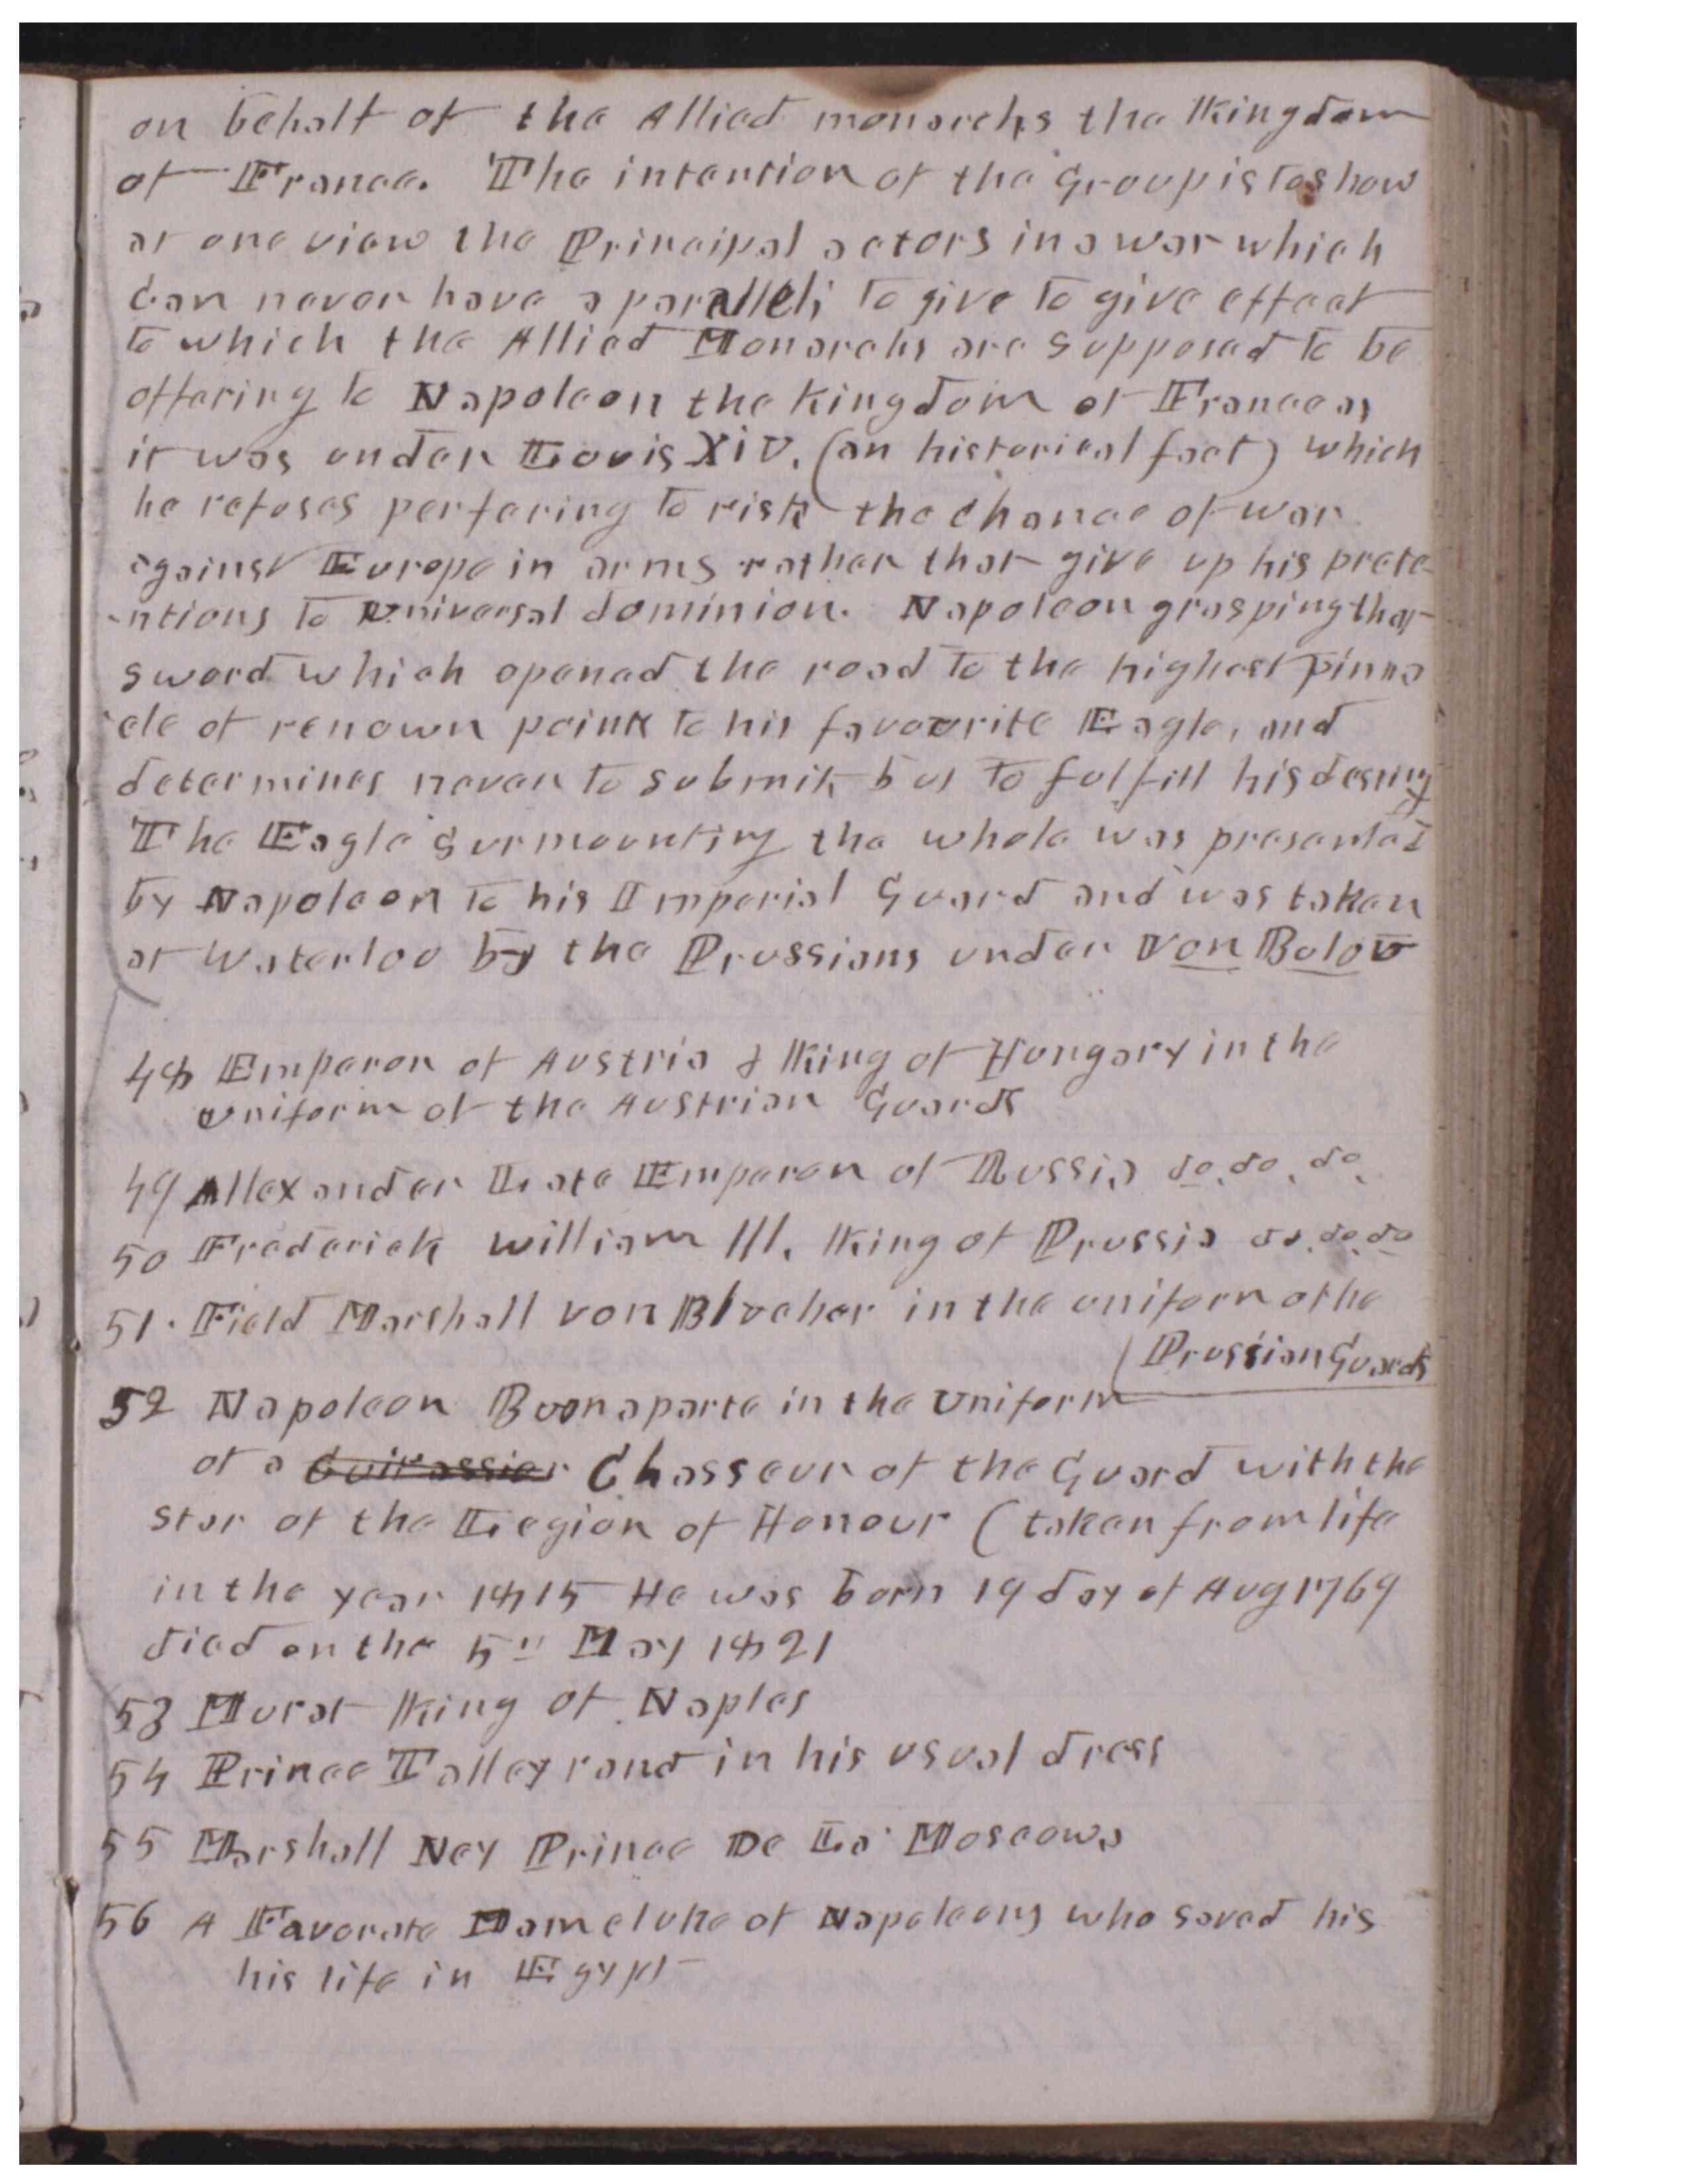 on behalf of the Allied monarchs the Kingdom
of France. The intention of the Group is to show
at one view the Principal actors in a war which
Can never have a parallel; to give to give effect
to which the Allied Monarchs are supposed to be
offering to Napoleon the Kingdom of France as
it was under Louis XIV. (an historical fact) which
he refuses perfering to risk the chance of war
against Europe in arms rather that give up his prete
-ntions to universal dominion. Napoleon grasping that
sword which opened the road to the highest pinna
cle of renown points to his favourite Eagle, and
determines never to submit, but to fulfill his destiny
The Eagle surmounting the whole was presented
by Napoleon to his Imperial Guard and was taken
at Waterloo by the Prussians under Von Bulow
48 Emperor of Austria & King of Hungary in the
uniform of the Austrian Guards
49 Allexander Late Emperor of Russia do. do. do.
50 Frederick William III. King of Prussia do. do. do
51. Field Marshall von Blucher in the uniform othe
Prussian Guards
52 Napoleon Buonaparte in the Uniform
of a Cuirassier Chasseur of the Guard with the
star of the Legion of Honour (taken from life
in the year 1815 He was born 19 day of Aug 1769
died on the 5th May 1821
53 Murat King of Naples
54 Prince Talleyrand in his usual dress
55 Marshall Ney Prince De La Moscowa
56 A Favorate Mameluke of Napoleons who saved his
his life in Egypt